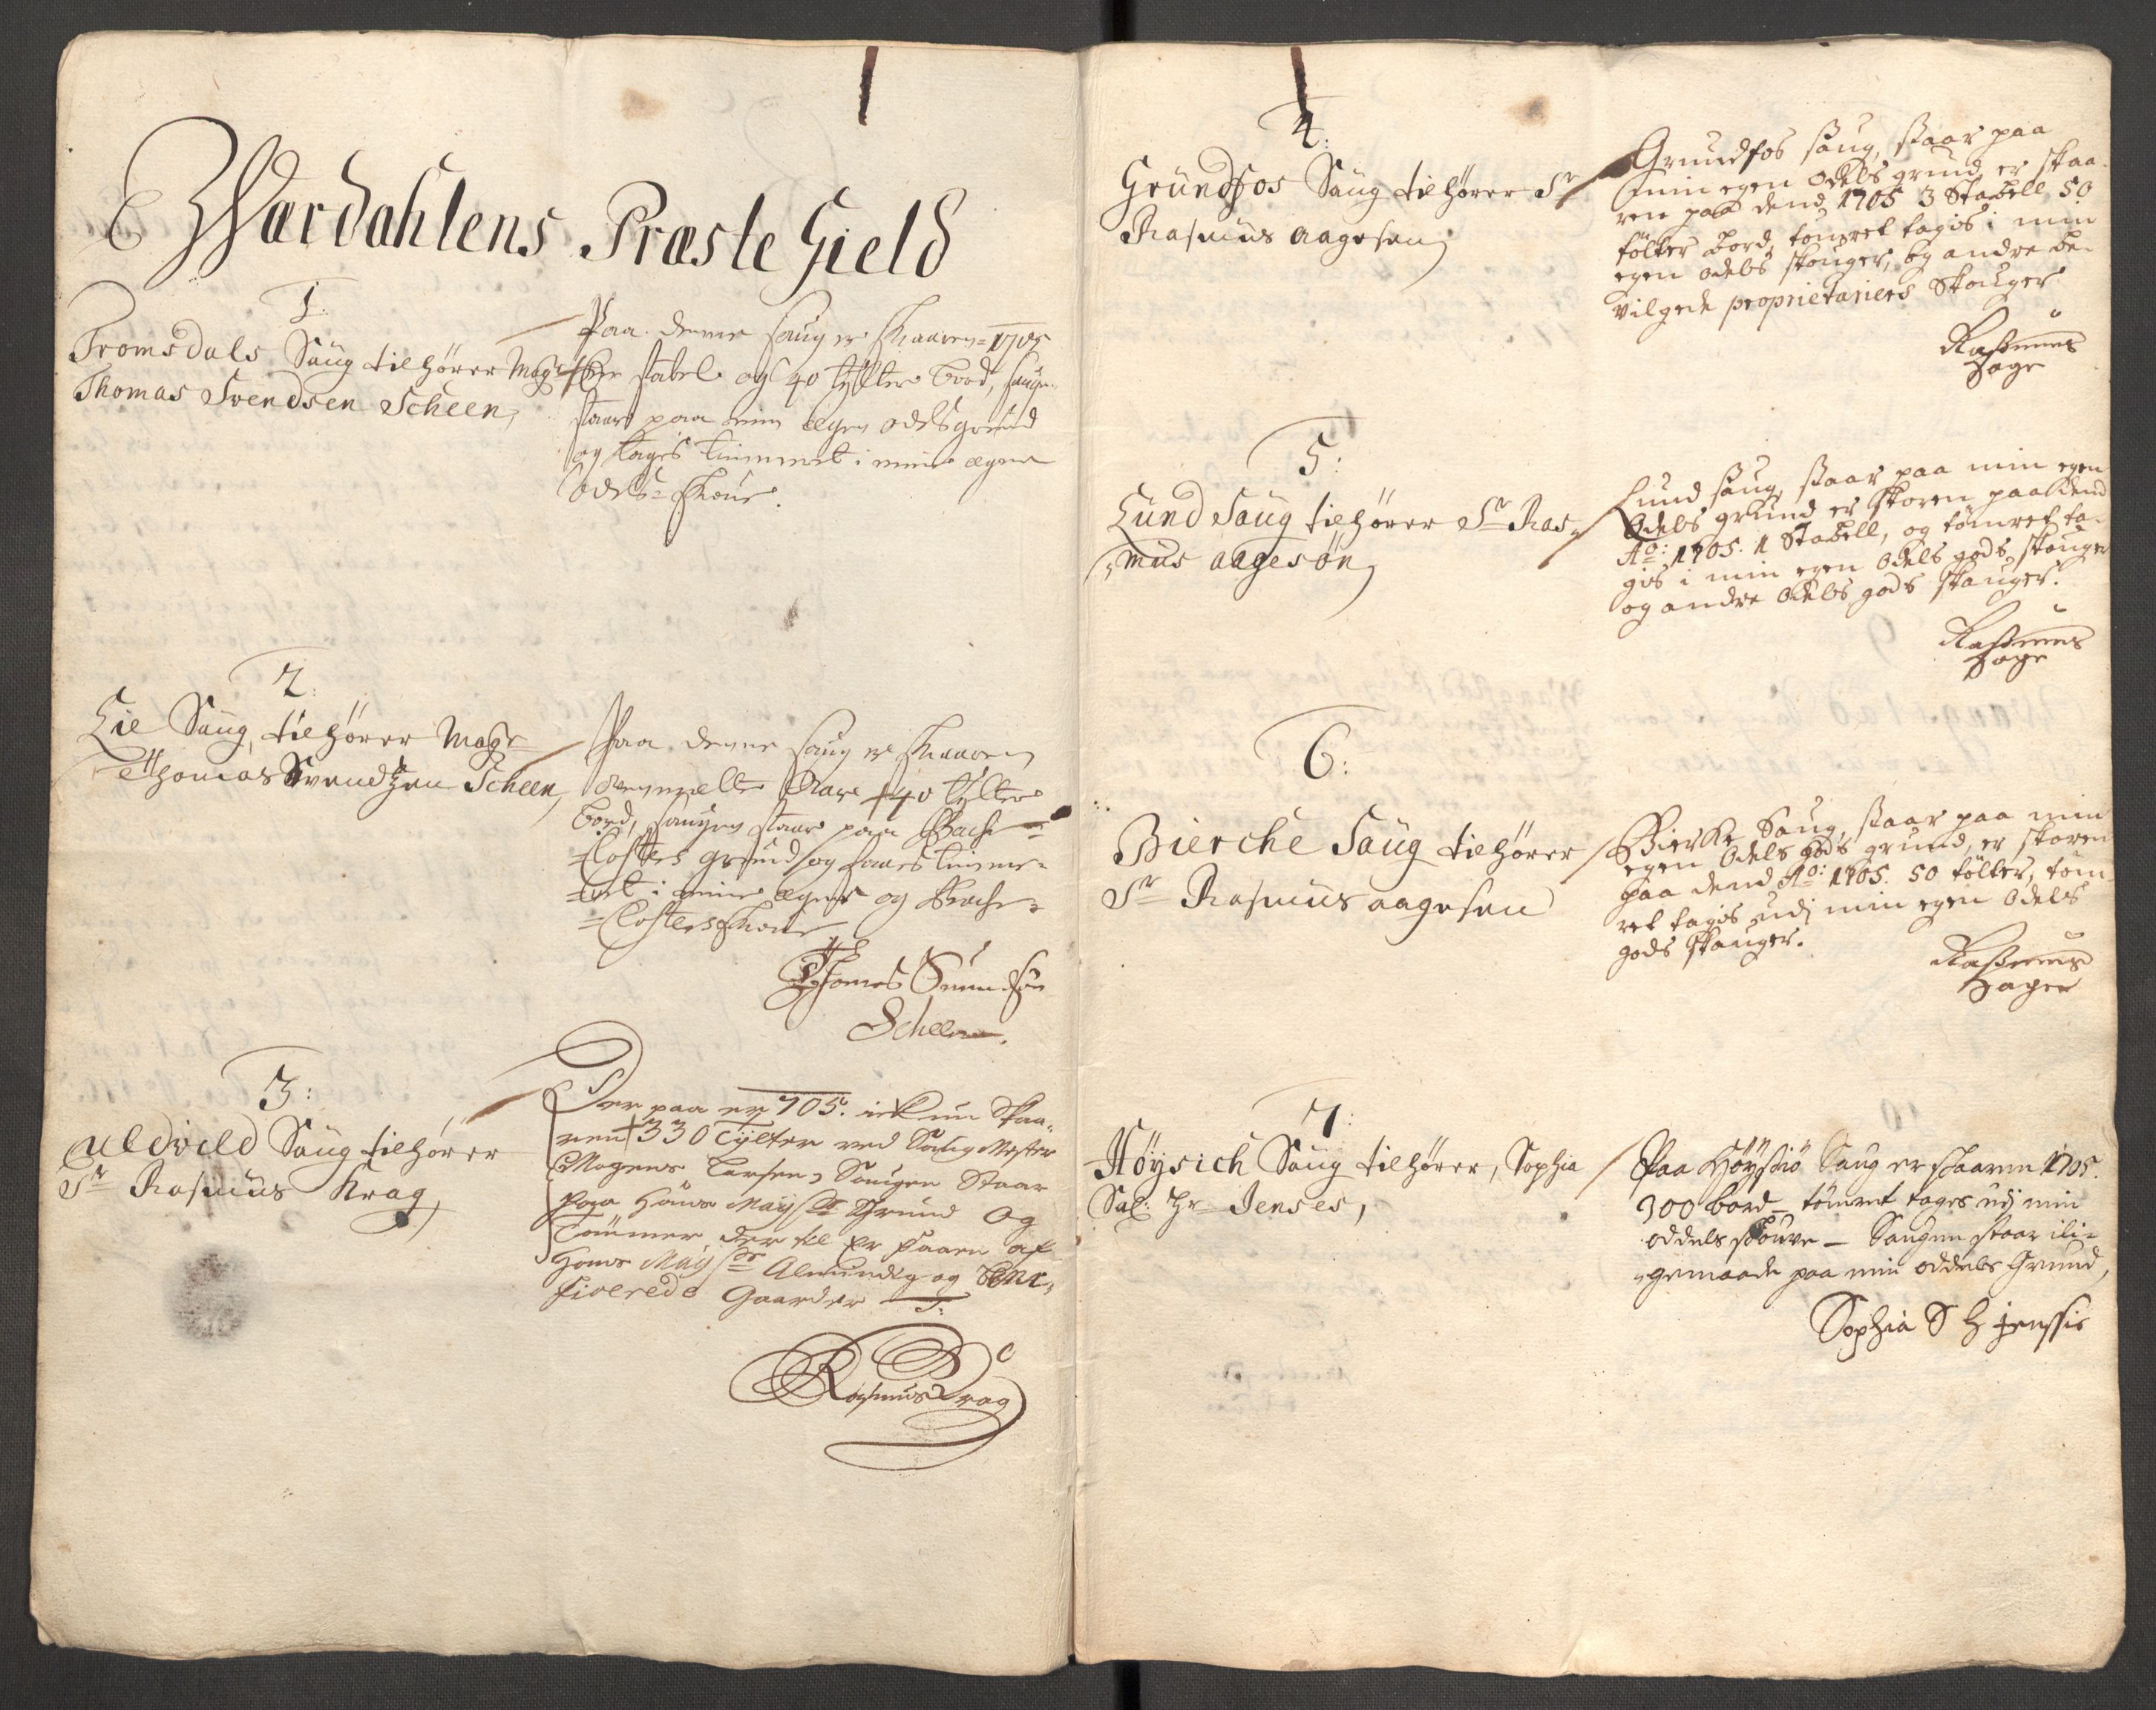 Wærdahlens Præste Gield
1.
Tromsdals Saug tilhører Magr
Thomas Svendsen Scheen,
Paa denne saug er skaaren 1705
En stabel og 40 tylter bord, saugen
staar paa min egen odelsgrund
og tages timmeret i mine egne
Odels-skoue.
2.
Lie Saug, tilhører Magr
Thomas Svendtzen Scheen,
Paa denne saug er skaaren
ovenmelte Aar 40 tylter
bord, saugen staar paa Bache
Closters grund og faaes timme-
ret i mine egne og Bache
Closters skoue
Thomes Suendsøn
Scheen.
3:
Uldvild Saug tilhører
Sr Rasmus Krag,
Der paa er 705. ickun Skaa-
ren 330 Tylter ved Saug Mester
Mogens Larsen, Saugen Staar
paa Hans Mayts Grund Og
Tømmer der til Er faaen af
Hans Mayts Almindig og
Gaarder
Rasmus Krag
4:
Grundfos Saug tilhører Sr
Rasmus Aagesen,
Grundfos saug, staar paa
min egen odels grund, er skaa-
ren paa dend 1705 3 Stabell 50
tölter bord, tömret tagis i min
egen odels skouger, og andre be-
vilgede proprietariers Skouger
Rasmus
Hage
5:
Lund Saug tilhører Sr Ras-
mus Aagesøn,
Lund saug, staar paa min egen
Odels grund er skoren paa dend
Ao: 1705. 1 Stabell, og tömret ta-
gis i min egen Odels gods skouger
og andre Odels gods skouger.
Rasmus
Hage
6:
Bierche Saug tilhører
Sr Rasmus Aagesen
Bierke Saug, staar paa min
egen Odels gods grund, er skoren
paa dend Ao: 1705. 50 tölter, töm
ret tagis udj min egen Odels
gods skouger.
Rasmus
Hagen
7:
Höysich Saug tilhører, Sophia
Sal: Hr Jenses,
Paa Höysiö Saug er skaaren 1705.
300 bord - tömret tages udj min
oddels skouve - Saugen staar ili-
gemaade paa min oddels Grund,
Sophia S H Jenssis